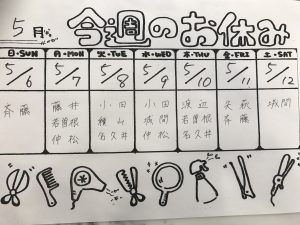 5月 今週のお休み
日・SUN 月・MON 火・TUE 水・WED 木・THU 金・FRI 土・SAT
5/6 5/7 5/8 5/9 5/10 5/11 5/12
斉藤 藤井 小田 小田 渡辺 矢萩 城間
若曽根 横山 城間 若曽根 斉藤
仲松 名久井 仲松 名久井